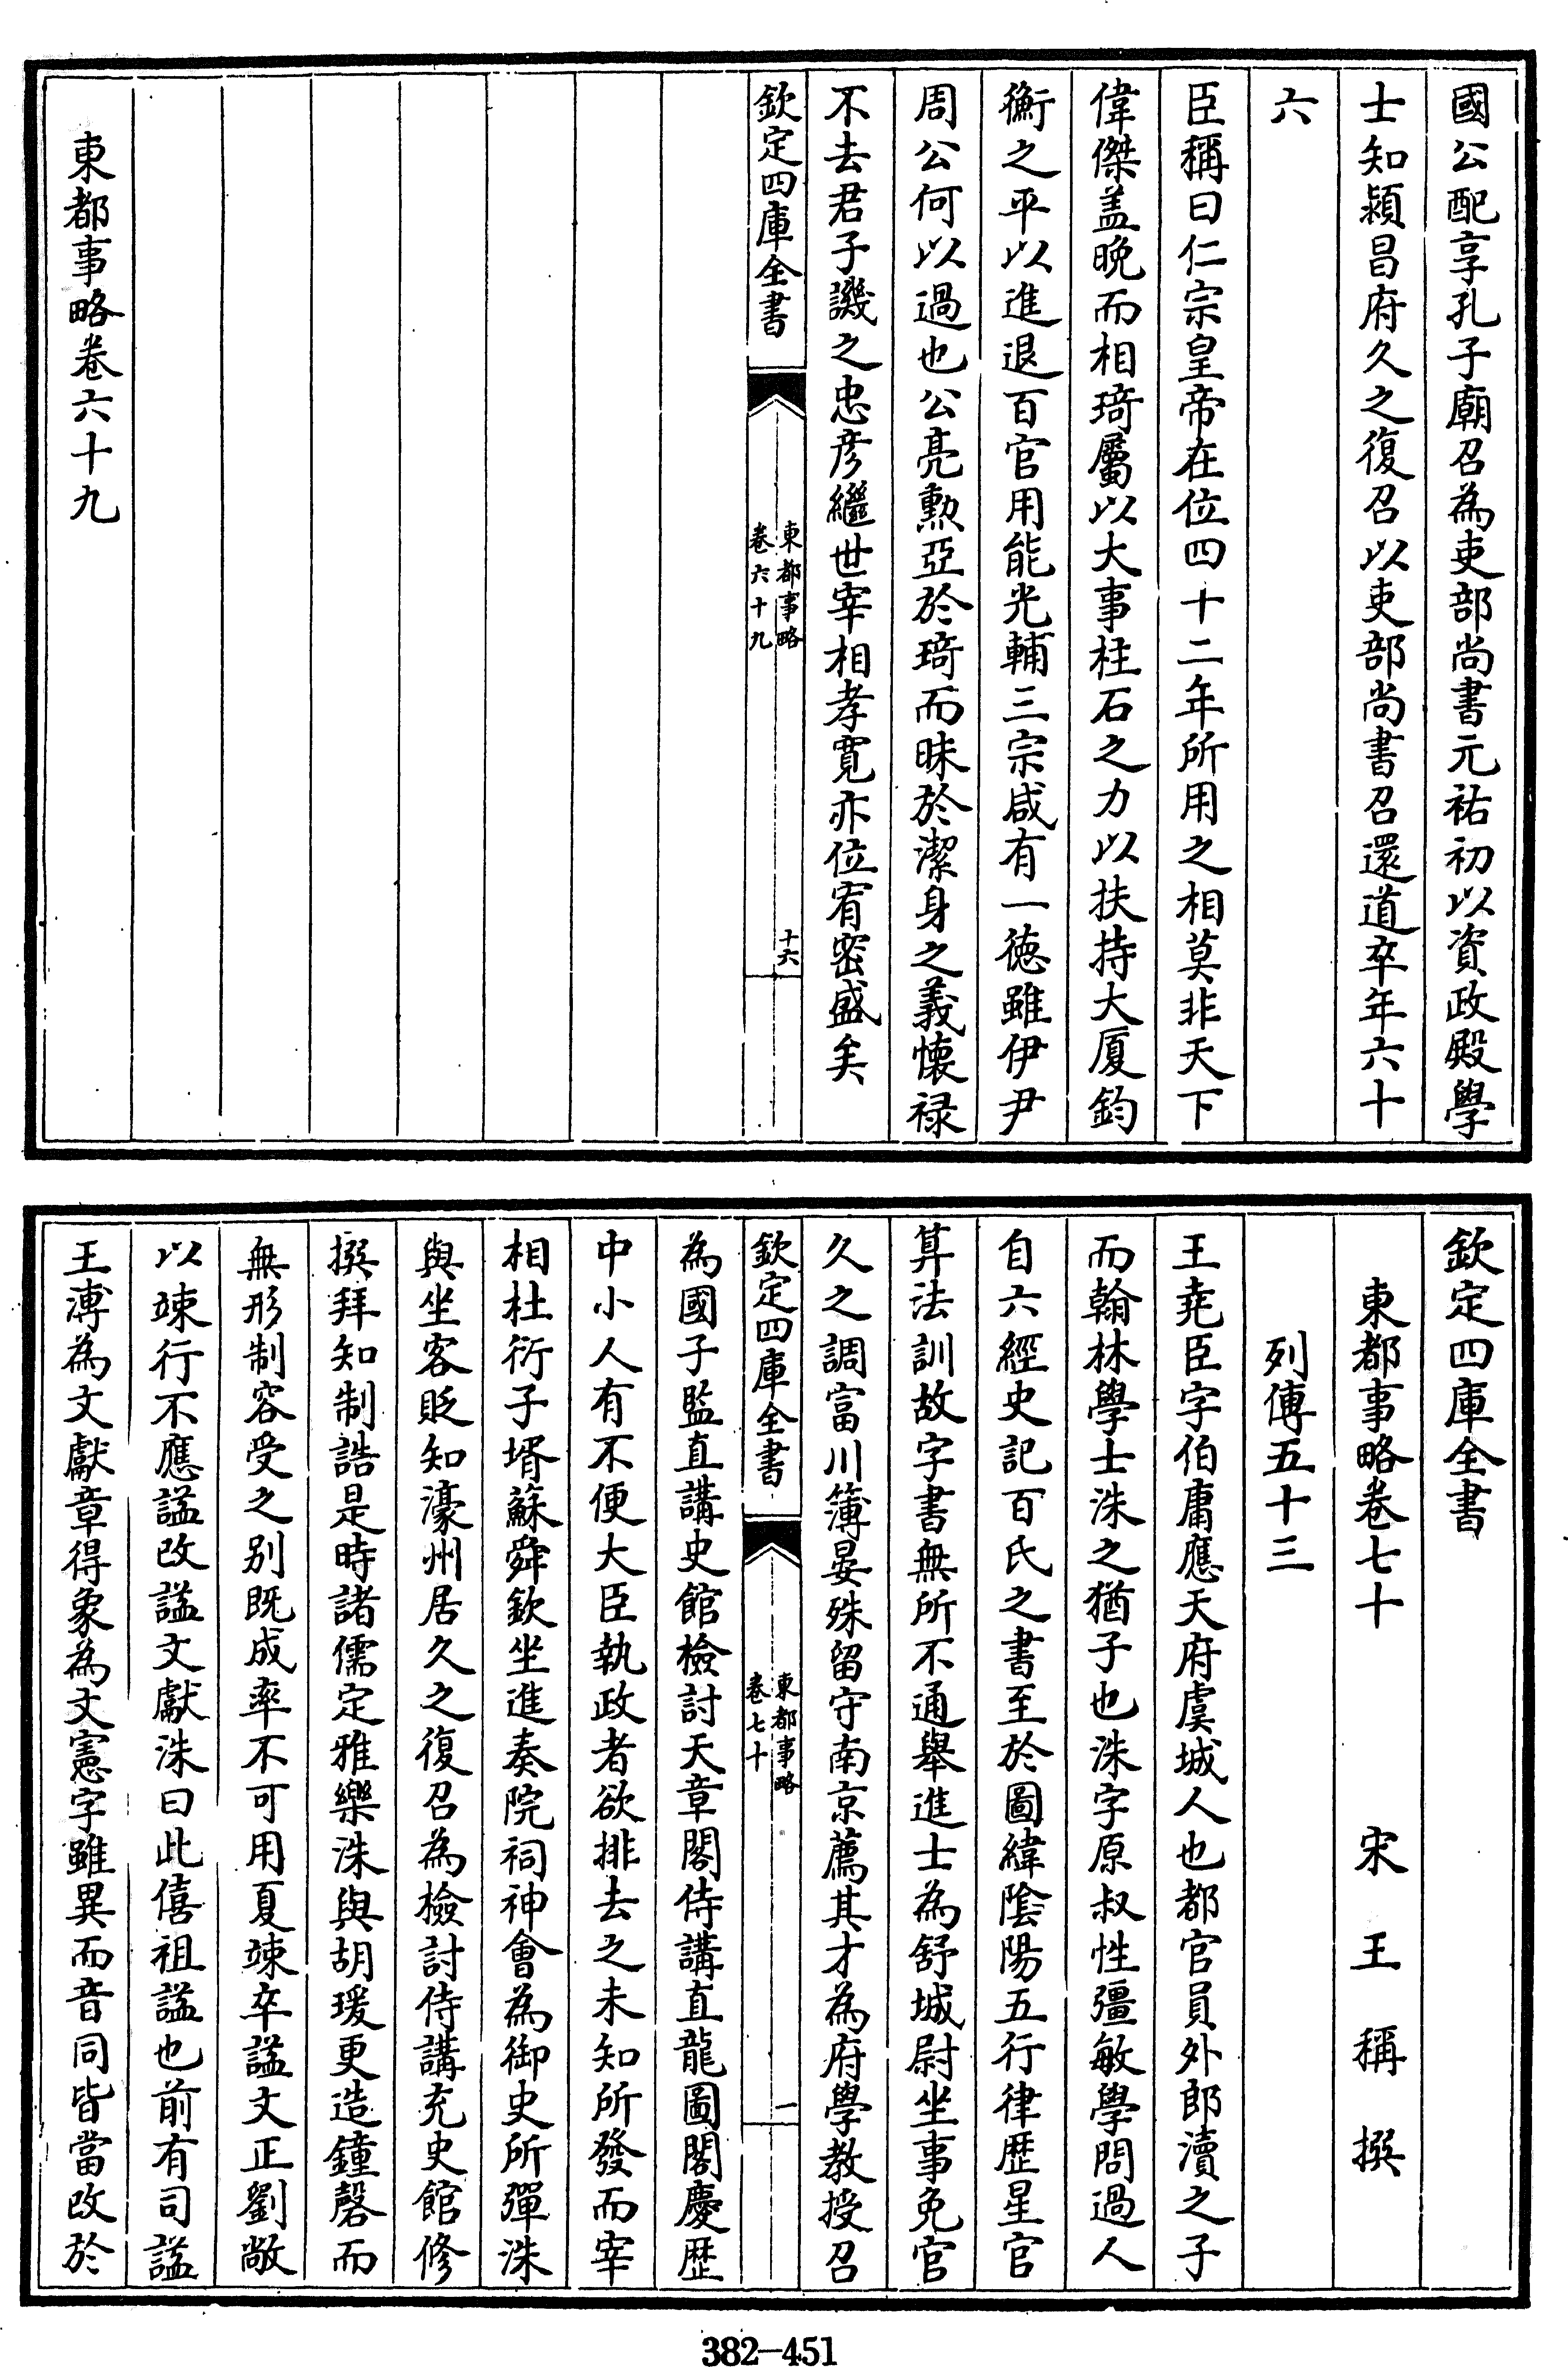 國公配享孔子廟召為吏部尚書元祐初以資政殿學
士知潁昌府久之復召以吏部尚書召還道卒年六十
六
臣稱曰仁宗皇帝在位四十二年所用之相莫非天下
偉傑盖晚而相琦屬以大事柱石之力以扶持大厦鈞
衡之平以進退百官用能光輔三宗咸有一德雖伊尹
周公何以過也公亮勲亞於琦而昧於潔身之義懐禄
不去君子譏之忠彦繼世宰相孝寛亦位宥密盛矣
欽定四庫全書
東都事略
卷六十九
十六
東都事略卷六十九
欽定四庫全書
東都事略卷七十
宋 王 稱 撰
列傳五十三
王堯臣字伯庸應天府虞城人也都官員外郎瀆之子
而翰林學士洙之猶子也洙字原叔性彊敏學問過人
自六經史記百氏之書至於圖緯隂陽五行律歴星官
算法訓故字書無所不通舉進士為舒城尉坐事免官
久之調富川簿晏殊留守南京薦其才為府學教授召
欽定四庫全書
東都事略
卷七十
一
為國子監直講史館檢討天章閣侍講直龍圖閣慶歴
中小人有不便大臣執政者欲排去之未知所發而宰
相杜衍子壻蘇舜欽坐進奏院祠神會為御史所彈洙
與坐客貶知濠州居久之復召為檢討侍講充史館修
撰拜知制誥是時諸儒定雅樂洙與胡瑗更造鐘磬而
無形制容受之别既成率不可用夏竦卒諡文正劉敞
以竦行不應諡改諡文獻洙曰此僖祖諡也前有司諡
王溥為文獻章得象為文憲字雖異而音同皆當改於
382-451